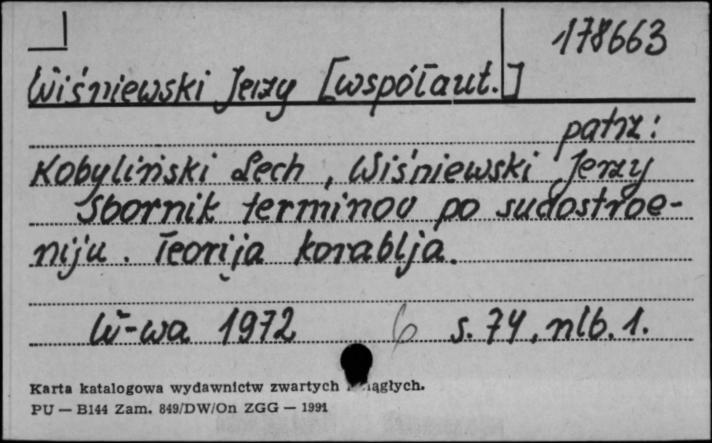 178663
Wiśniewski Jerzy [współaut.]
patrz:
Kobyliński Lech, Wiśniewski Jerzy
Sbornik terminov po sudostroe-
niju. Teorija korablja.
W-wa 1972 6 s. 74, nlb. 1.
Karta katalogowa wydawnictw zwartych i ciągłych.
PU — B144 Zam. 849/DW/On ZGG — 1991